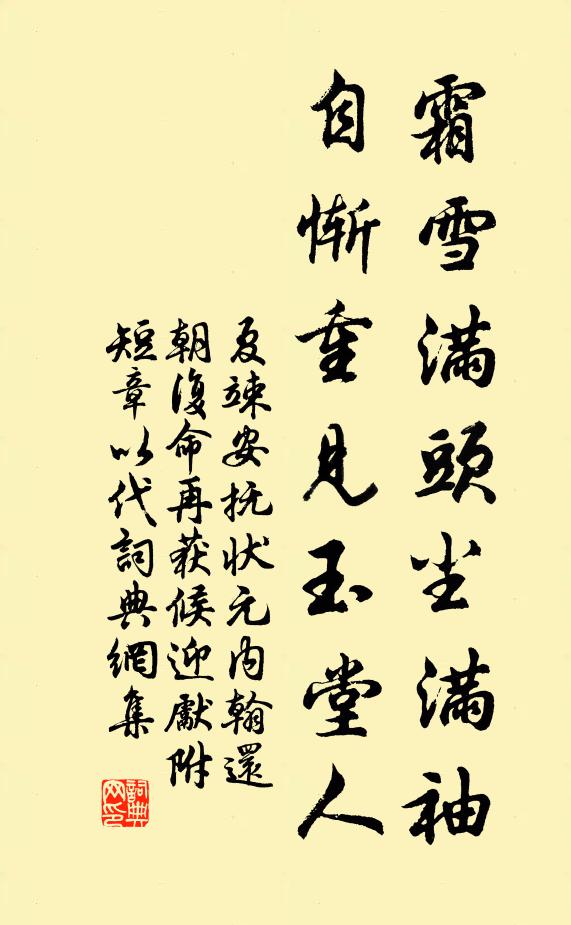 霜雪滿頭尘滿袖
自慚重見玉堂人
夏竦安抚状元内翰還
朝復命再获候迎獻附
短章以代詞典網集
詞典
网印